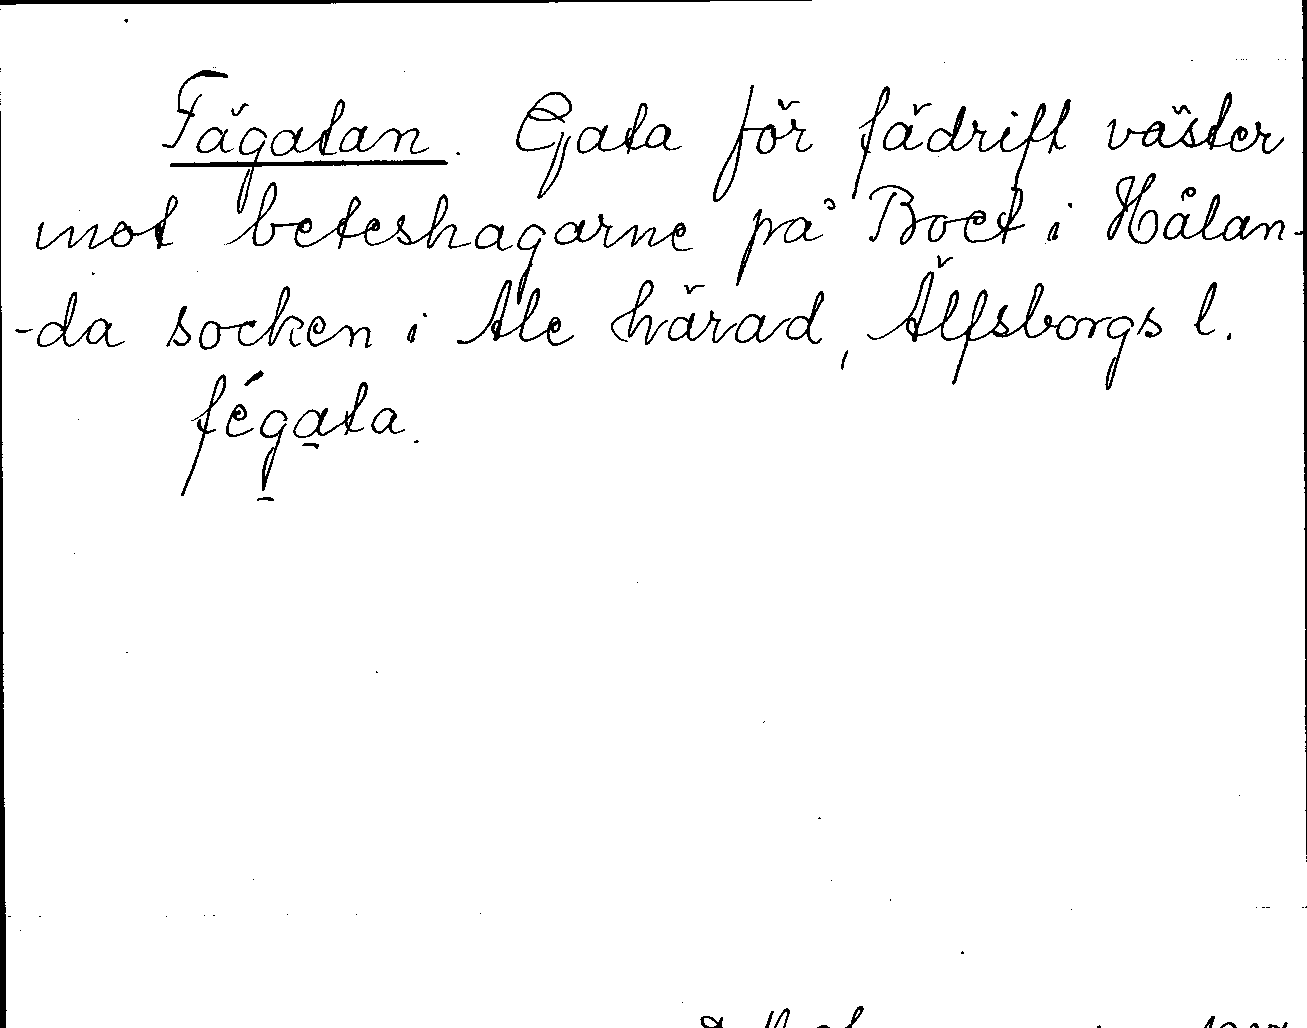 Fägatan. Gata för fädrift väster
mot beteshagarne på Boet i Hålan-
-da socken i Ale härad, Älfsborgs l.
fégata.